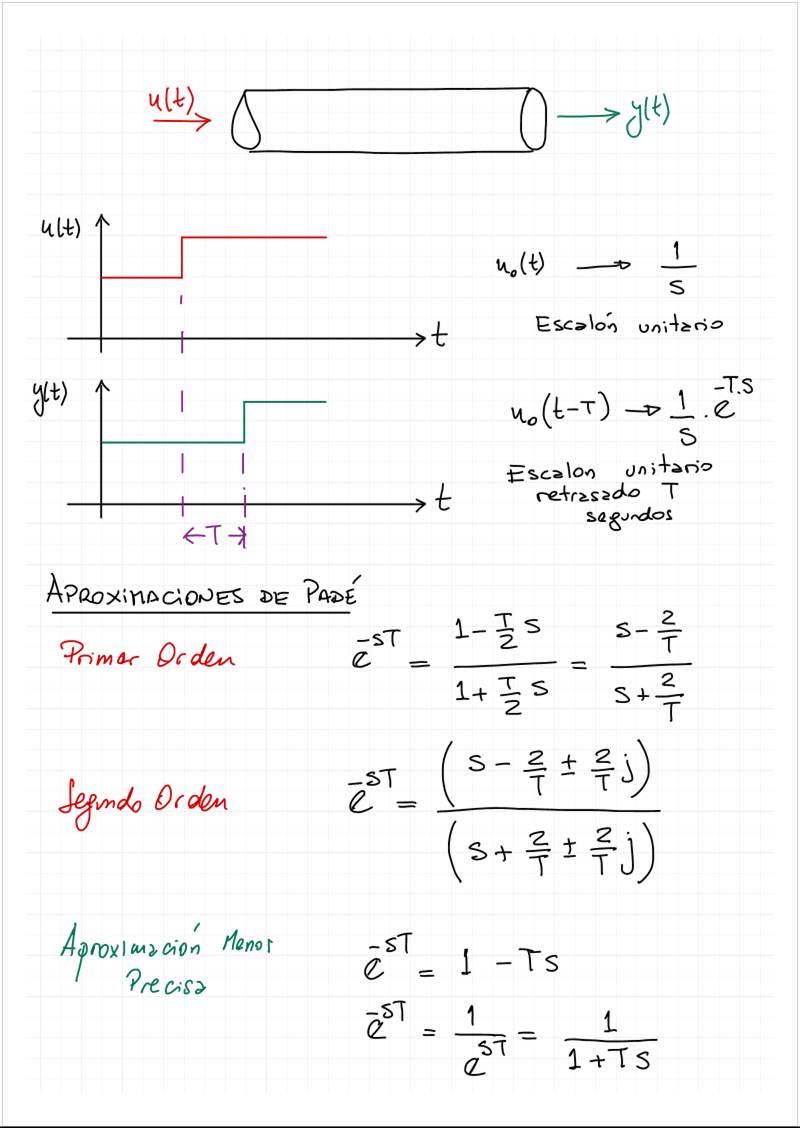 u(t)
y(t)
u(t)
t
u₀(t) → 1/s
Escalón unitario
y(t)
t
← T →
u₀(t-T) → 1/s . e^-T.S
Escalon unitario
retrasado T
segundos
APROXIMACIONES DE PADÉ
Primer Orden
e^-ST = (1 - T/2 s)/(1 + T/2 s) = (s - 2/T)/(s + 2/T)
Segundo Orden
e^-ST = (s - 2/T ± 2/T j)/(s + 2/T ± 2/T j)
Aproximación Menor
Precisa
e^-ST = 1 - Ts
e^-ST = 1/e^ST = 1/(1 + Ts)